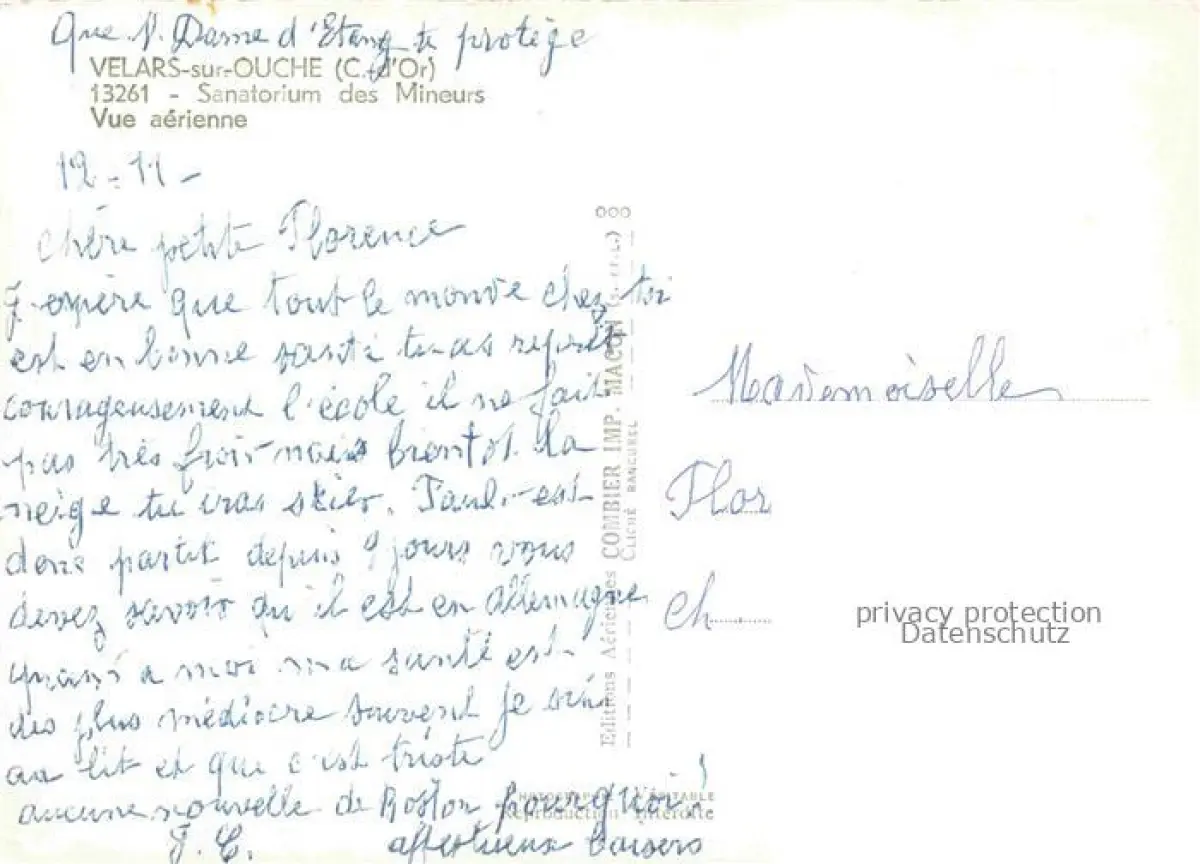 Que N. Dame d'Etang te protège
VELARS-sur-OUCHE (C.-d'Or)
13261 - Sanatorium des Mineurs
Vue aérienne
12-11-
Chère petite Florence
J'espère que tout le monde chez toi
est en bonne santé tu as repris
courageusement l'école il ne fait
pas très froid mais bientôt la
neige tu vras skier. Paul est
donc partit depuis 9 jours vous
devez savoir qu'il est en Allemagne
quand à moi ma santé est
des plus médiocre souvent je suis
au lit et que c'est triste
aucune nouvelle de Boston pourquoi!
affectueux baisers
Editions Aériennes COMBIER IMP. MACON
CLICHÉ RANCUREL
VÉRITABLE
Reproduction Interdite
Mademoiselle
Flor
Ch
privacy protection
Datenschutz